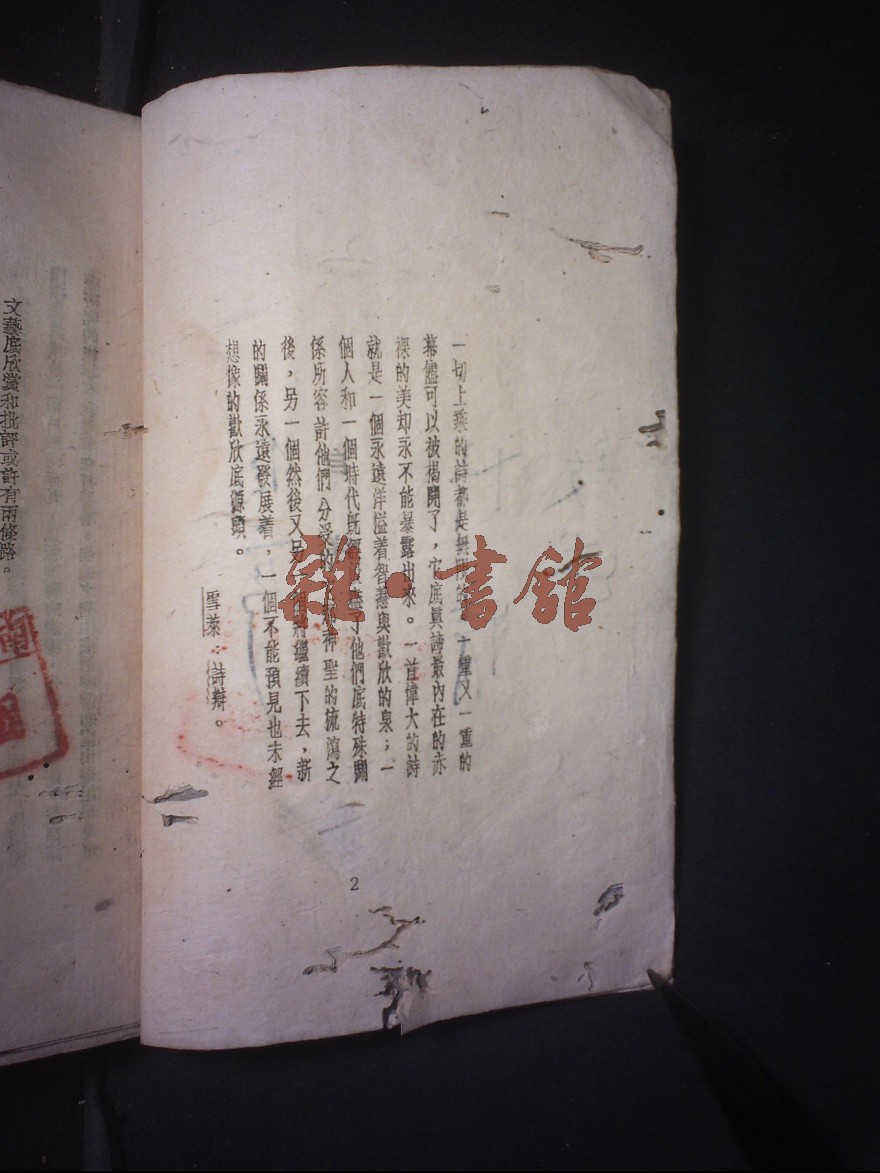 一切上乘的詩都是無限的一重又一重的
幕儘可以被揭開了，它底眞諦最內在的赤
裸的美却永不能暴露出來。一首偉大的詩
就是一個永遠洋溢着智慧與歡欣的泉；一
個人和一個時代旣經了他們底特殊關
係所容許他們分受的神聖的流瀉之
後，另一個然後又另一將繼續下去，新
的關係永遠發展着，一個不能預見也未經
想像的歡欣底源頭。
雪萊：詩辯。
2
文藝底欣賞和批評或許有兩條路。
雜·書館